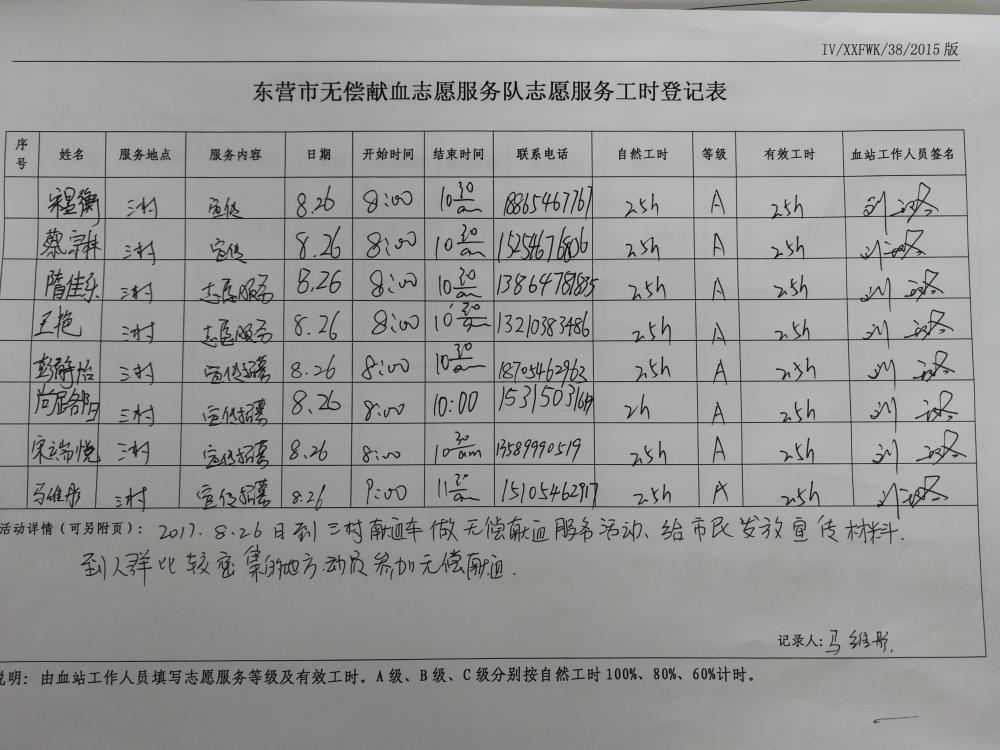 IV/XXFWK/38/2015 版
东营市无偿献血志愿服务队志愿服务工时登记表
序号 姓名 服务地点 服务内容 日期 开始时间 结束时间 联系电话 自然工时 等级 有效工时 血站工作人员签名
三村 宣传 8.26 8:00 10 30 am 18865467767 2.5h A 2.5h 刘
蔡宗林 三村 宣传 8.26 8:00 10 30 am 15254676806 2.5h A 2.5h 刘
隋佳乐 三村 志愿服务 8.26 8:00 10 30 am 13864781835 2.5h A 2.5h 刘
王艳 三村 志愿服务 8.26 8:00 10 30 am 13210383486 2.5h A 2.5h 刘
彭静怡 三村 宣传招募 8.26 8:00 10 30 am 18705462963 2.5h A 2.5h 刘
三村 宣传招募 8.26 8:00 10:00 2h A 2.5h 刘
宋瑞悦 三村 宣传招募 8.26 8:00 10 30 am 13589990519 2.5h A 2.5h 刘
马维彤 三村 宣传招募 8.26 9:00 11 30 am 15105462917 2.5h A 2.5h 刘
活动详情(可另附页): 2017.8.26日到三村献血车做无偿献血服务活动、给市民发放宣传材料.
到人群比较密集的地方动员参加无偿献血.
记录人:马维彤.
说明: 由血站工作人员填写志愿服务等级及有效工时。A 级、B 级、C 级分别按自然工时 100%、80%、60%计时。